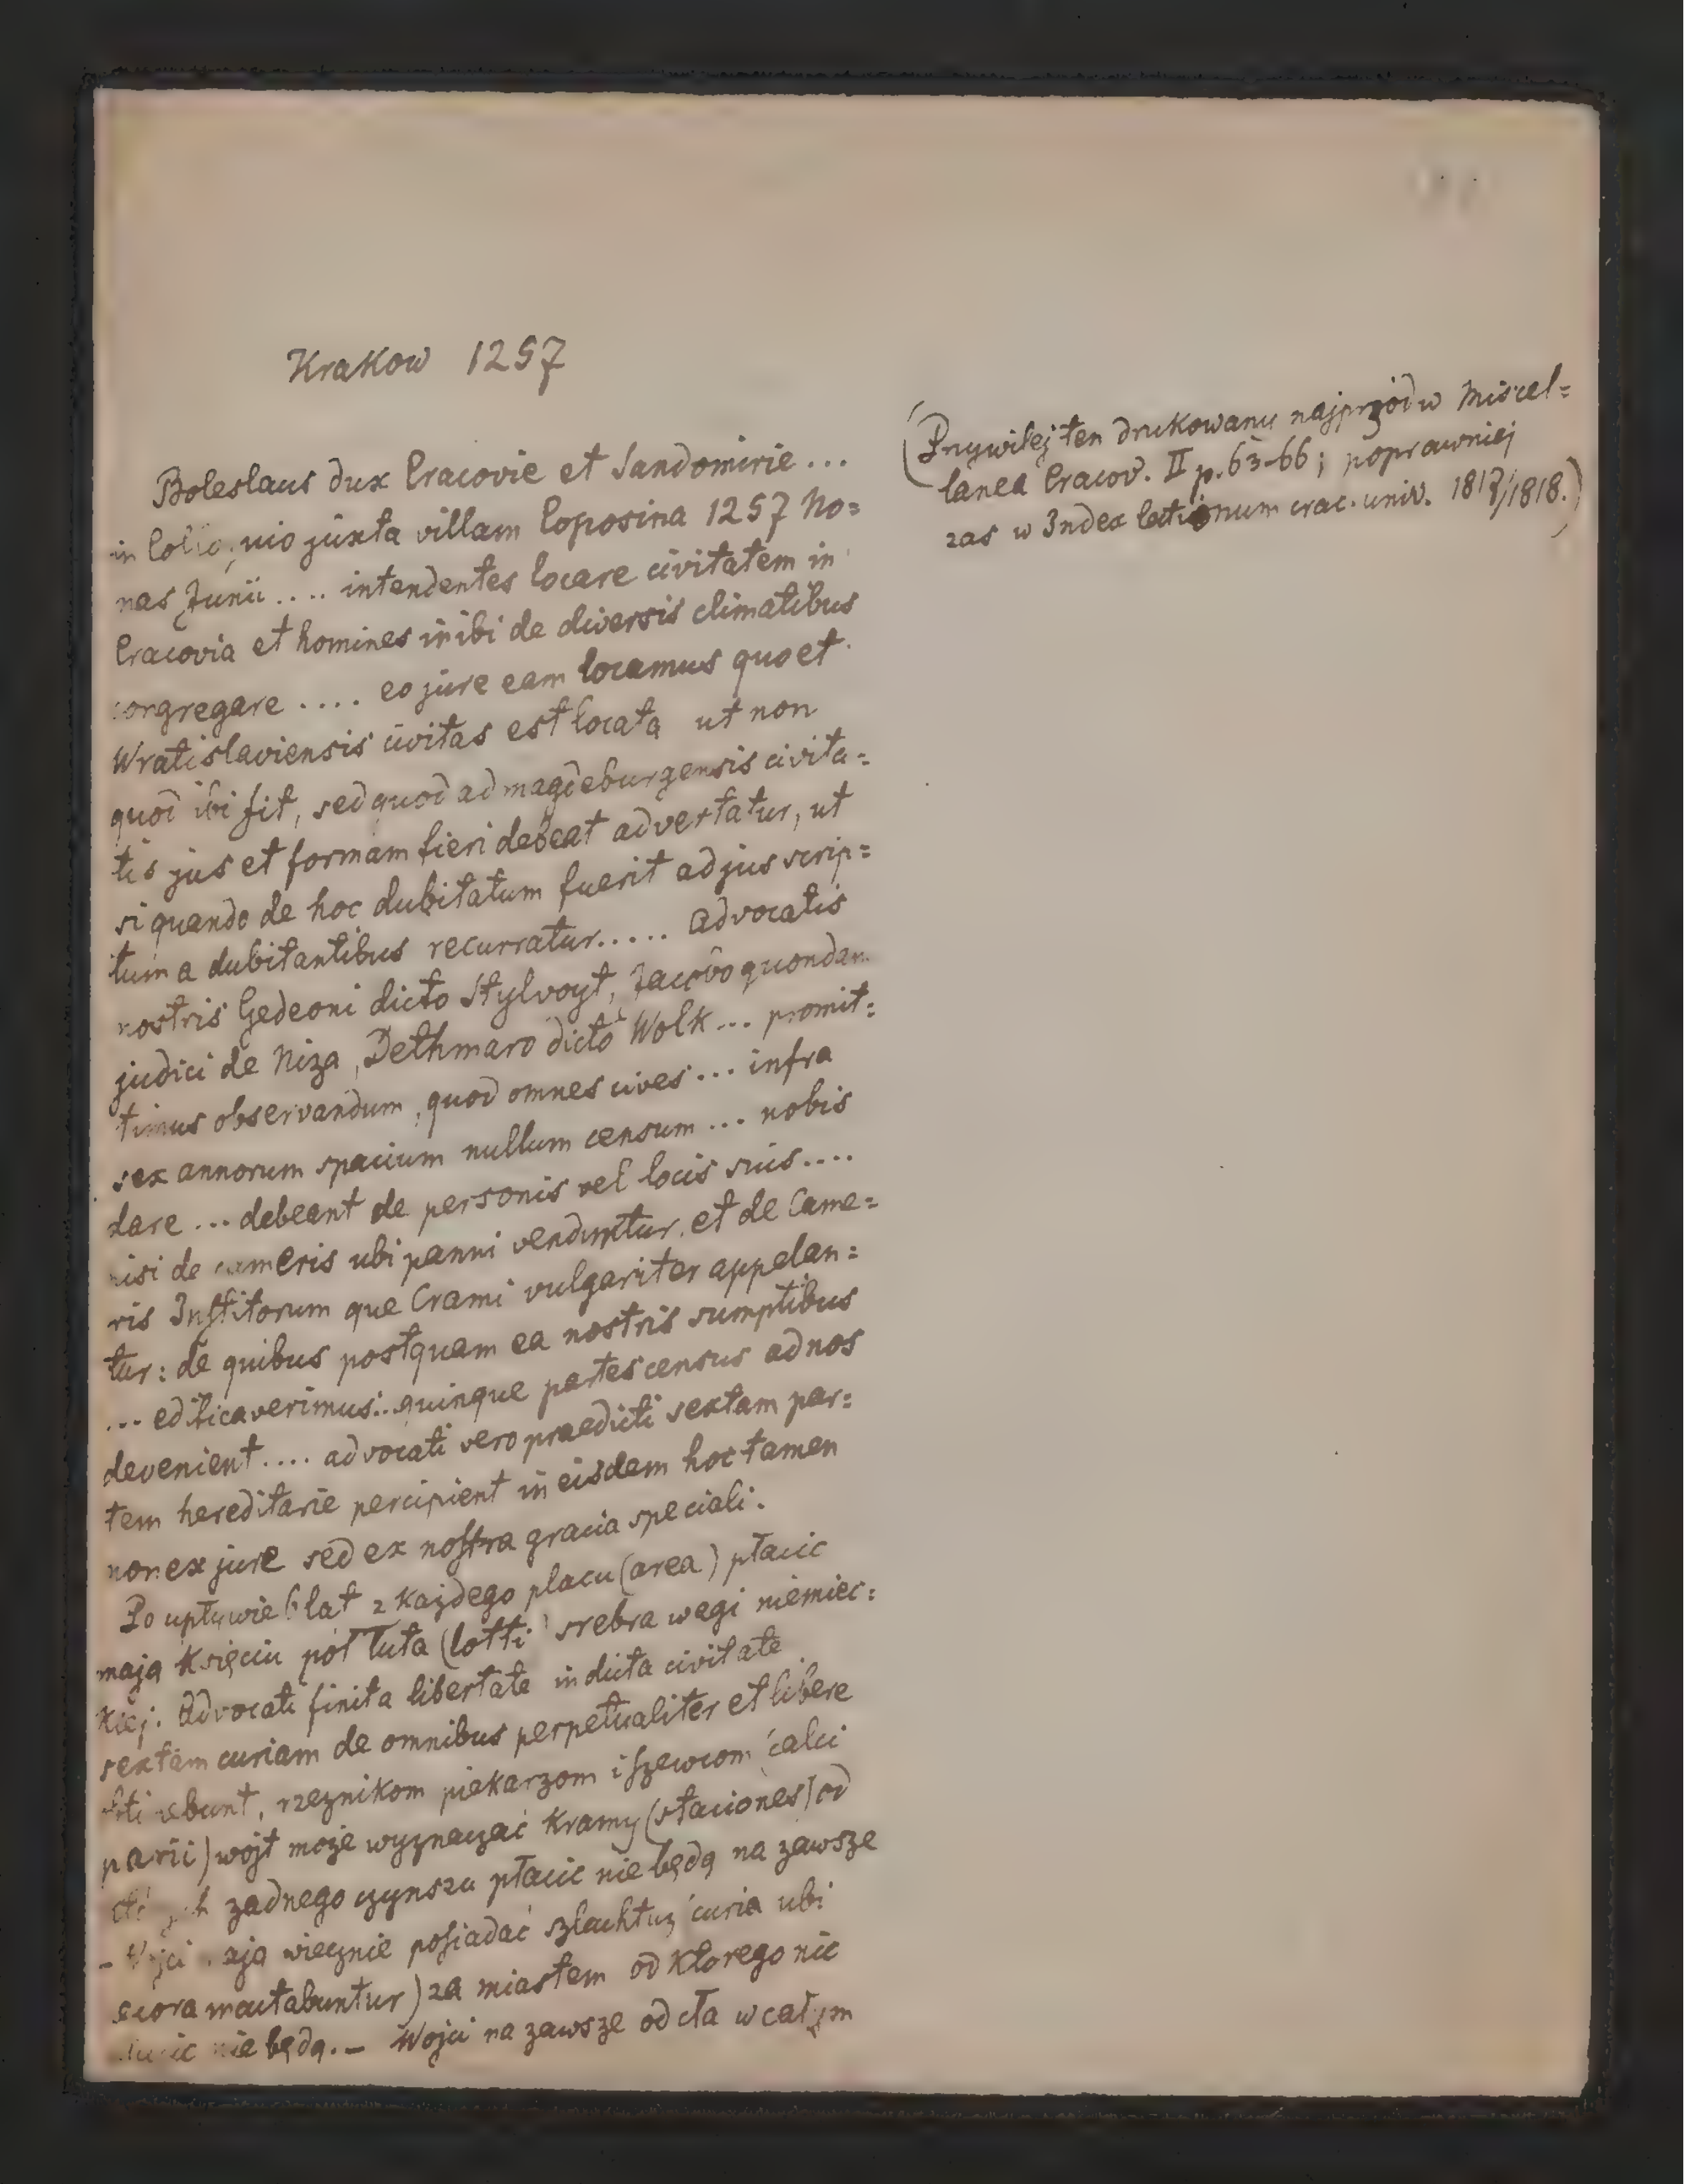 Krakow 1257
Boleslaus dux Cracovie et Sandomirie ...
in Colloquio juxta villam Coposina 1257 No=
nas Junii .... intendentes locare civitatem in
Cracovia et homines inibi de diversis climatibus
congregare .... eo jure eam locamus quo et
Wratislaviensis civitas est locata ut non
quod ibi fit, sed quod ad magdeburgensis civita=
tis jus et formam fieri debeat advertatur, ut
si quando de hoc dubitatum fuerit ad jus scrip=
tum a dubitantibus recurratur..... advocatis
nostris Gedeoni dicto Stylvoyt, Jacobo quondam
judici de Niza, Dethmaro dicto Wolk ... promit=
timus observandum, quod omnes cives ... infra
sex annorum spacium nullum censum ... nobis
dare ... debeant de personis vel locis suis ....
nisi de cameris ubi panni venduntur. et de Came=
ris Institorum que Crami vulgariter appelan=
tur: de quibus postquam ea nostris sumptibus
... edificaverimus... quinque partes census ad nos
devenient .... advocati vero praedicti sextam par=
tem hereditarie percipient in eisdem hoc tamen
non ex jure sed ex nostra gracia speciali.
Po upływie 6 lat z każdego placu (area) płacic
mają Księciu pół łuta (lotti) srebra wagi niemiec=
kiej. Advocati finita libertate in dicta civitate
sextam curiam de omnibus perpetualiter et libere
rzeznikom piekarzom i szewcom calci
parii) wojt może wyznaczać kramy (staciones) od
żadnego czynszu płacic nie będą na zawsze
- wiecznie posiadać szlachtuz curia ubi
pecora mactabuntur) za miastem od ktorego nic
nie będą. - Wojci na zawsze od cła w całym
(Przywilej ten drukowany najprzód w Miscel=
lanea Cracov. II p. 63-66; poprawniej
zas w Index lectionum crac. univ. 1817/1818.)